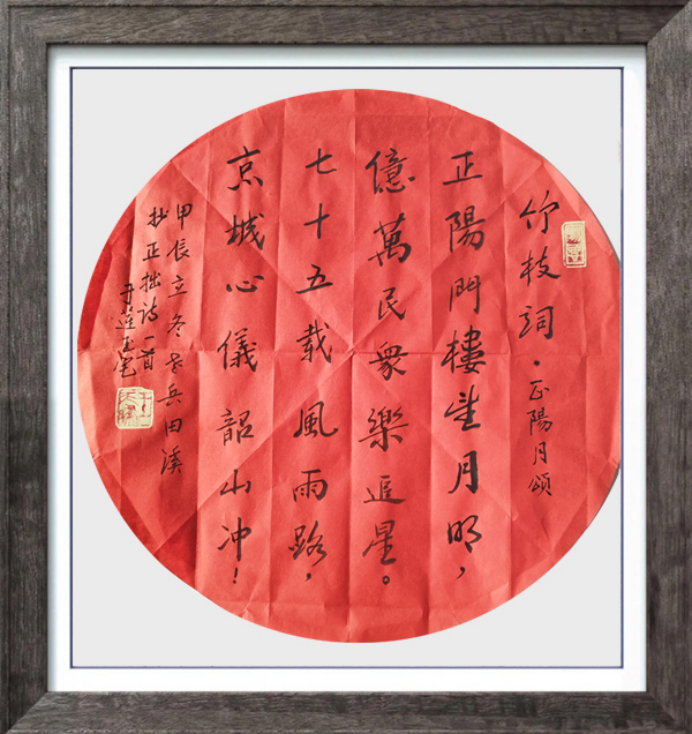 竹枝詞·正陽月頌
正陽門樓望月明，
億萬民衆樂追星。
七十五载風雨路，
京城心儀韶山冲！
甲辰立冬老兵田溪
抄正拙诗一首
于莲